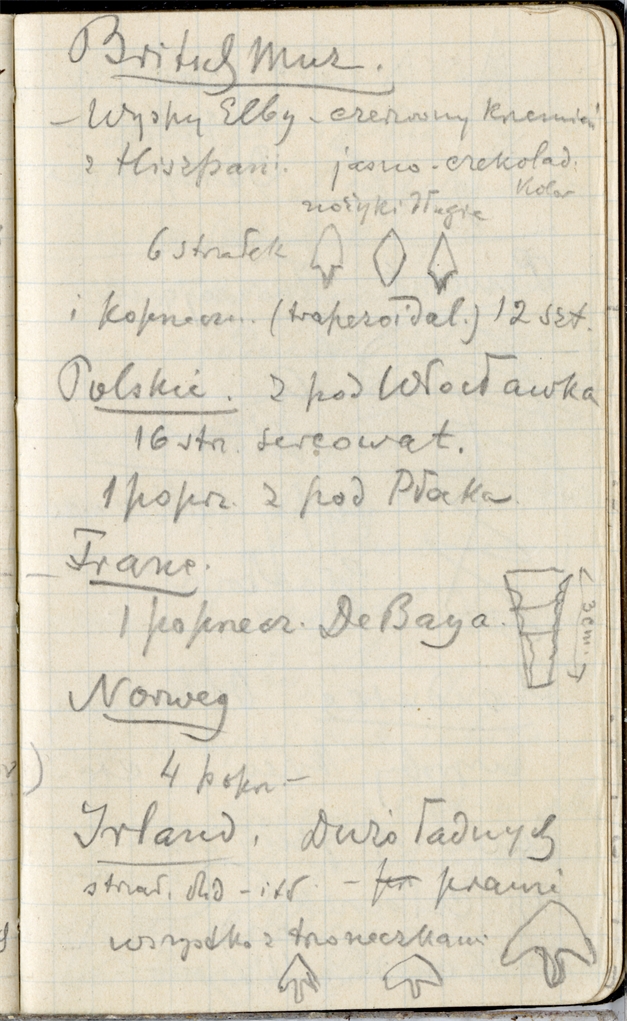 British Muz.
– Wyspy Elby – czerwony krzemień
z Hiszpani. jasno-czekolad.
kolor
nożyki długie
6 strzałek
i poprzecz. (trapezoidal.) 12 szt.
Polskie. z pod Włocławka
16 strz. sercowat.
1 poprz. z pod Płocka
Franc.
1 poprzecz. De Baya.
3 cm.
Norweg
4 popr –
Irland. Dużo ładnych
strzał. – itd. – prawie
wszystko z trzoneczkami